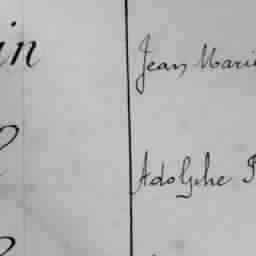 in Jean Marie
Adolphe